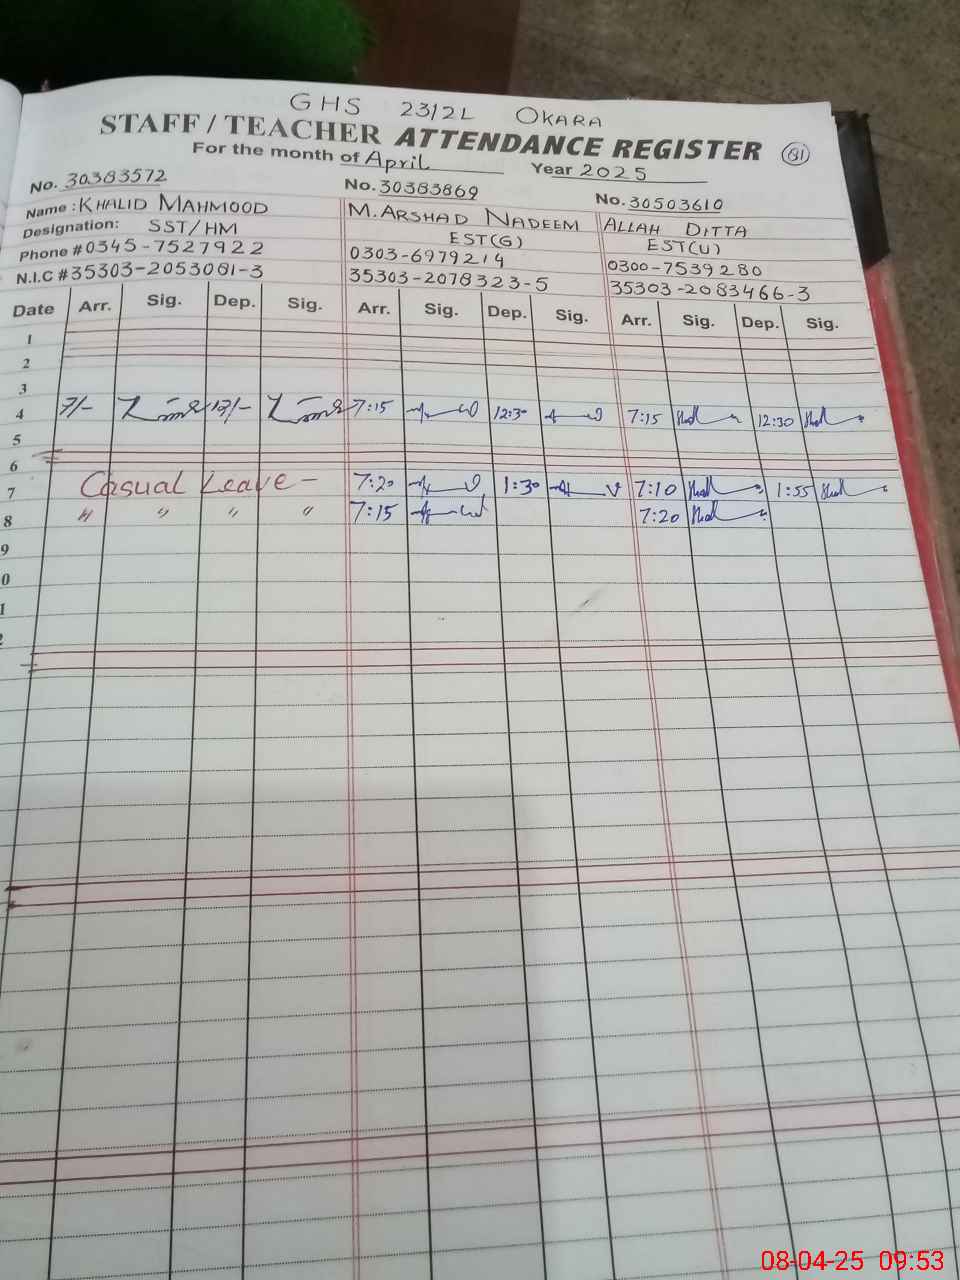 GHS 23/2L OKARA
STAFF / TEACHER ATTENDANCE REGISTER 81
For the month of April Year 2025
No. 30383572 No. 30383869 No. 30503610
Name : KHALID MAHMOOD M. ARSHAD NADEEM ALLAH DITTA
Designation: SST/HM EST(G) EST(U)
Phone # 0345-7527922 0303-6979214 0300-7539280
N.I.C # 35303-2053081-3 35303-2078323-5 35303-2083466-3
Date Arr. Sig. Dep. Sig. Arr. Sig. Dep. Sig. Arr. Sig. Dep. Sig.
1
2
3
4 7/- 12/- 7:15 12:30 7:15 12:30
5
6
7 Casual Leave - 7:20 1:30 7:10 1:55
8 " " " " 7:15 7:20
9
0
1
2
08-04-25 09:53